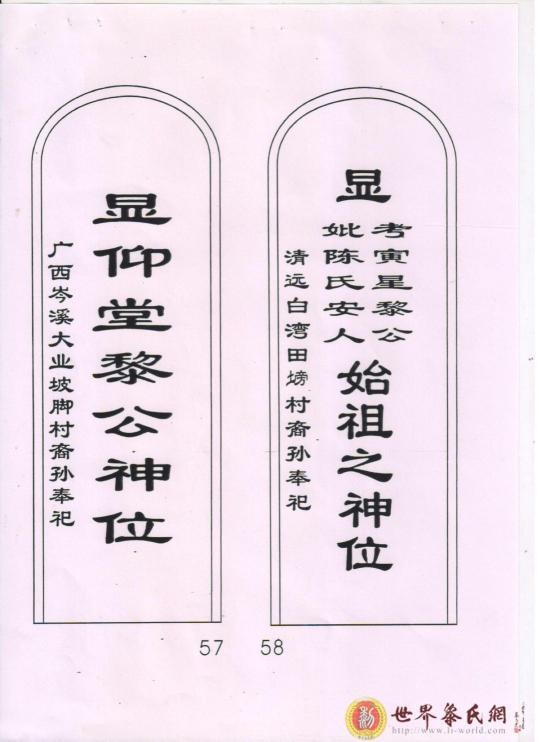 显仰堂黎公神位
广西岑溪大业坡脚村裔孙奉祀
57
显
考寅星黎公
妣陈氏安人
始祖之神位
清远白湾田塝村裔孙奉祀
58
世界黎氏網
http://www.li-world.com